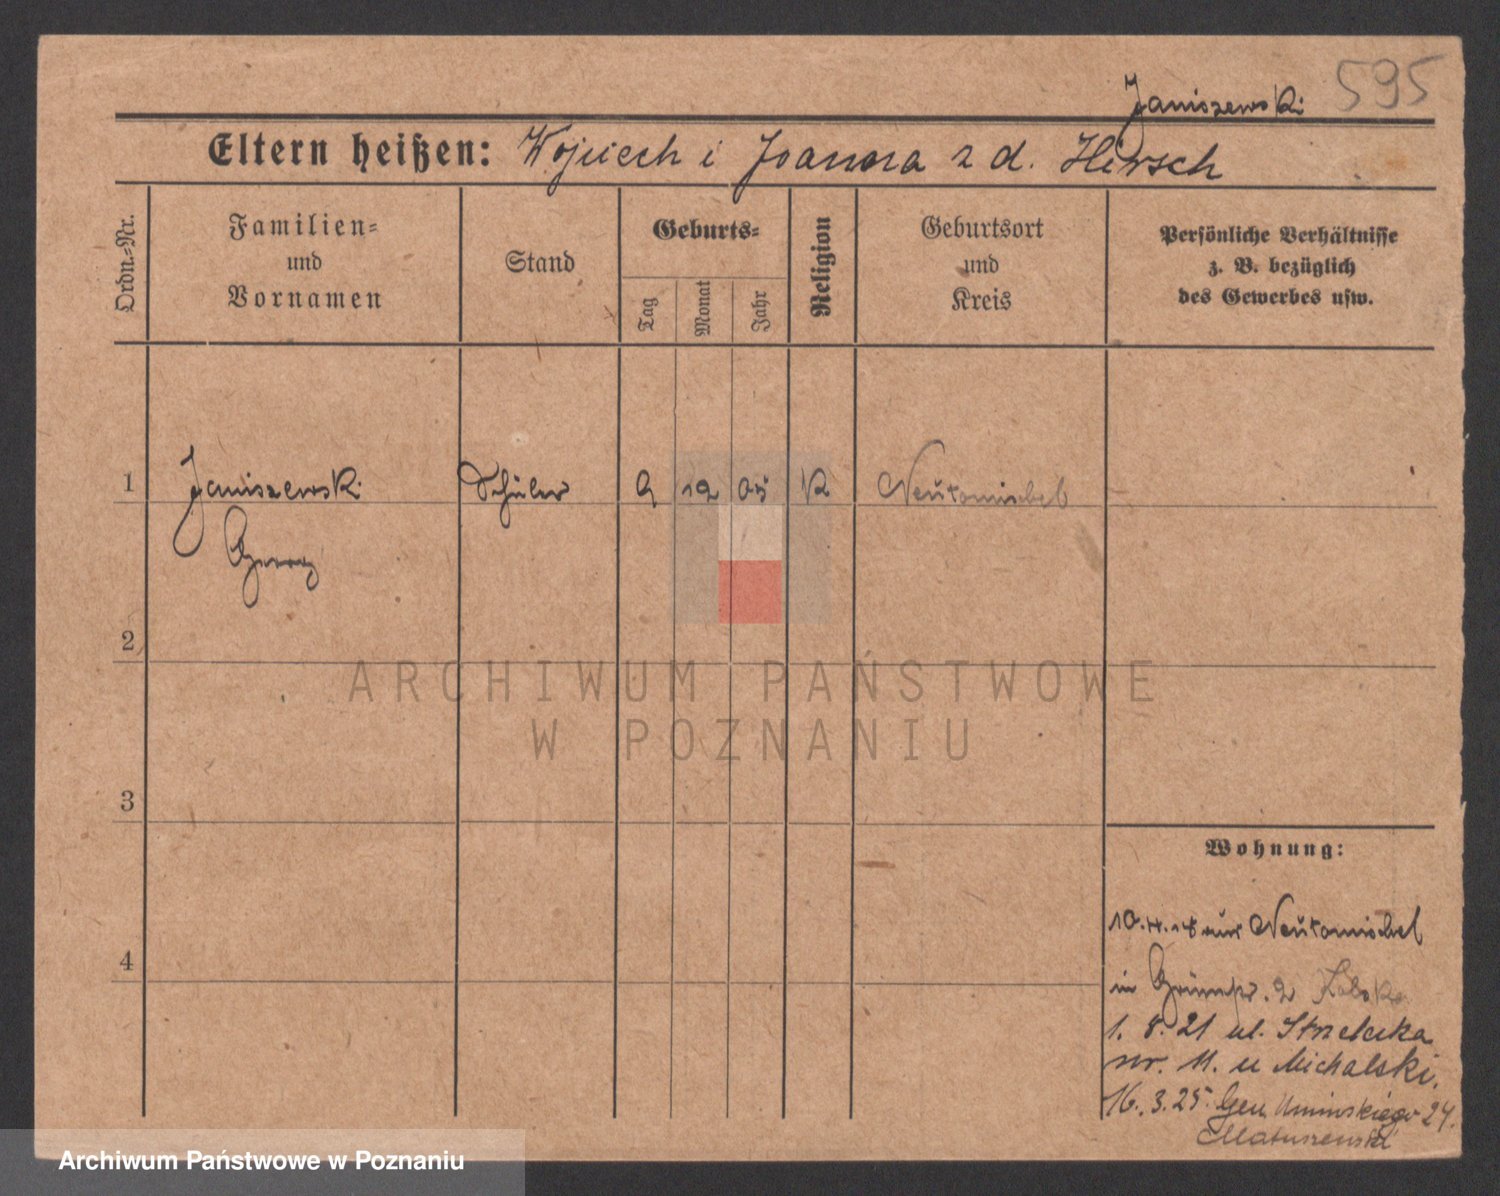 595
Janiszewski
Eltern heißen: Wojciech i Joanna z d. Hirsch
Ordn.-Nr.
Familien-
und
Vornamen
Stand
Geburts-
Tag
Monat
Jahr
Religion
Geburtsort
und
Kreis
Persönliche Verhältnisse
z. B. bezüglich
des Gewerbes usw.
1 Janiszewski Schüler 9 12 05 K Neutomischel
Georg
2
3
4
ARCHIWUM PAŃSTWOWE
W POZNANIU
Wohnung:
10. 4. 18 aus Neutomischel
in 2
1. 8. 21 ul. Strzelecka
nr. 11. u Michalski.
16. 3. 25. Gen. Umińskiego 24.
Matuszewski
Archiwum Państwowe w Poznaniu